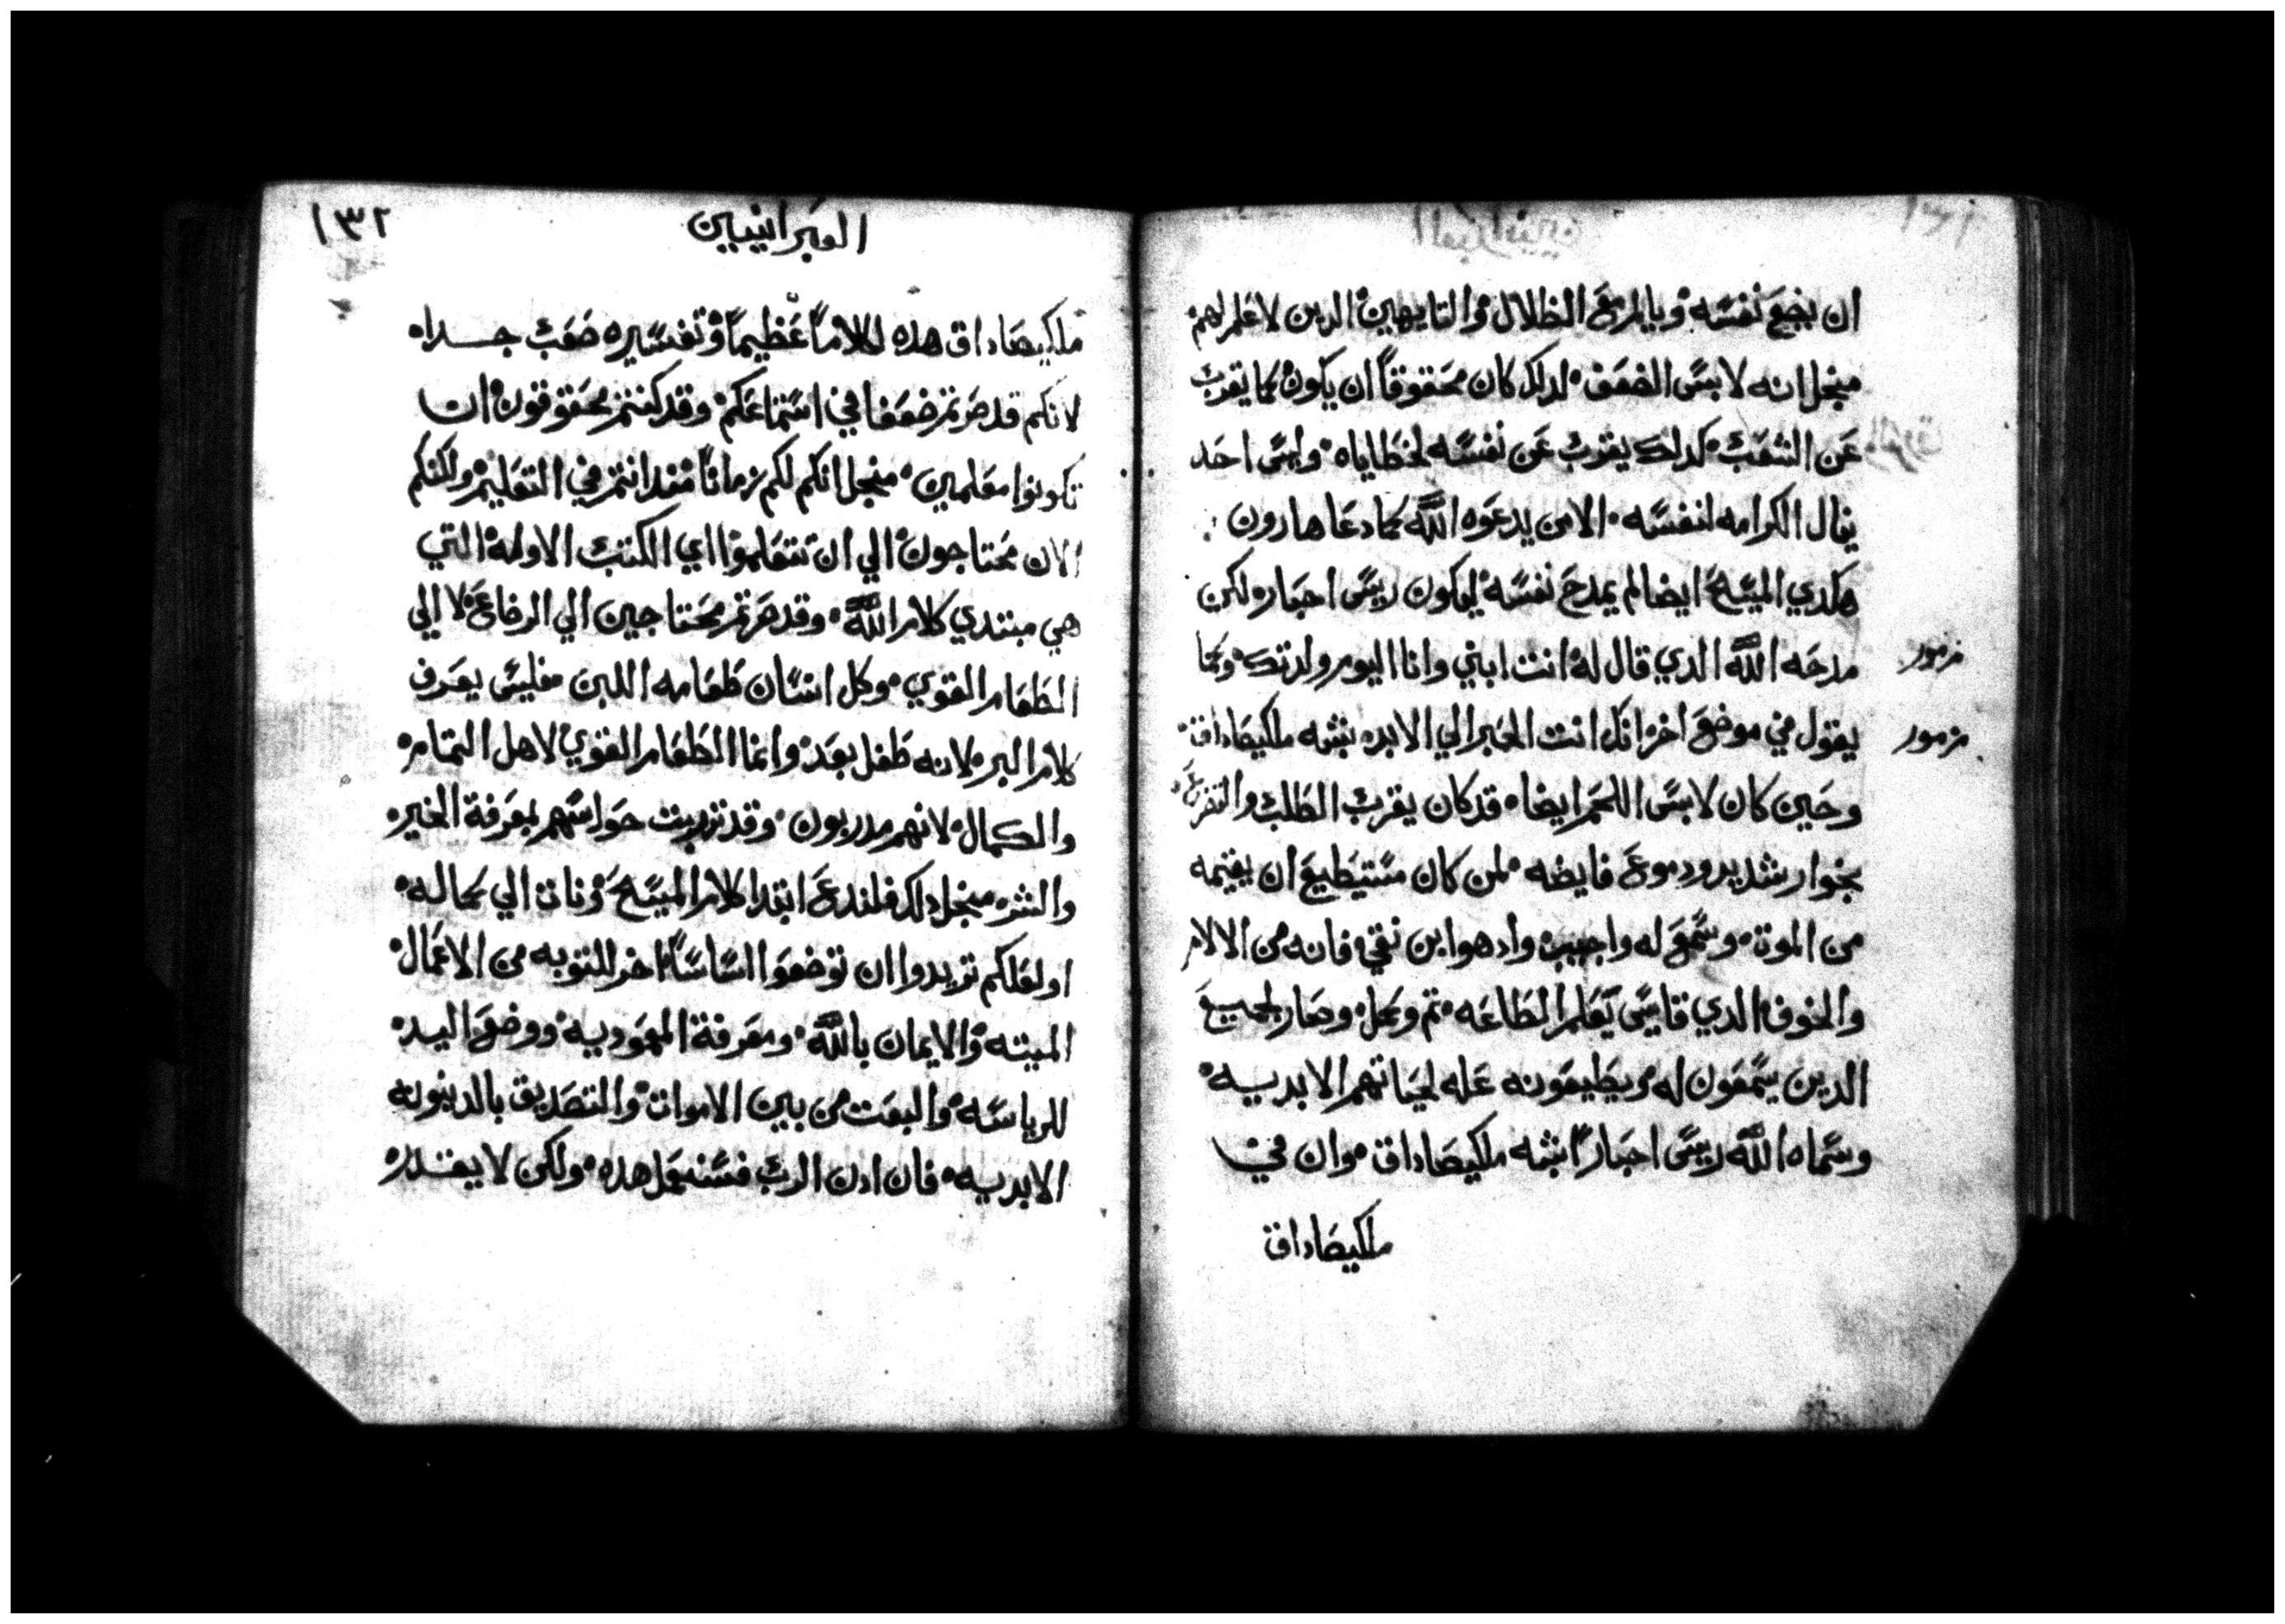 ان يضع نفسه ويالم مع الظلال والتايهين الدين لا علم لهم
منجل انه لابس الضعف لدلك كان محقوقاً ان يكون كما يقرب
عن الشعب كدلك يقرب عن نفسه لخطاياه وليس احد
ينال الكرامه لنفسه الا من يدعوه الله كما دعا هارون
هكدي المسيح ايضا لم يمدح نفسه ليكون ريس احبار لكن
مدحه الله الدي قال له انت ابني وانا اليوم ولدتك وكما
مزمور
يقول في موضع اخر انك انت الحبر الي الابد بشبه ملكيصاداق
مزمور
وحين كان لابس اللحم ايضا قد كان يقرب الطلب والتضرع
بخوار شديد ودموع فايضه لمن كان مستيطيع ان يقيمه
من الموت وسمع له واجيب واد هو ابن نقي فانه من الالام
والخوف الدي قاسي يعلم الطاعه تم وكمل وصار لجميع
الدين يسمعون له ويطيعونه عله لحياتهم الابديه
وسماه الله ريس احباراً بشبه ملكيصاداق وان في
ملكيصاداق
العبرانيين
١٣٢
ملكيصاداق هده لكلاماً عظيماً وتفسيره صعب جداه
لانكم قد صرتم ضعفا في استماعكم وقد كنتم محقوقون ان
تكونوا معلمين منجل انكم لكم زماناً مند انتم في التعليم ولكنكم
الان محتاجون الي ان تتعلموا اي الكتب الاوله التي
هي مبتدي كلام الله وقد صرتم محتاجين الي الرضاع لا الي
الطعام القوي وكل انسان طعامه اللبن فليس يعرف
كلام البر لانه طفل بعد وانما الطعام القوي لاهل التمام
والكمال لانهم مدربون وقد تدربت حواسهم بمعرفة الخير
والشر منجل دلك فلندع ابتدا كلام المسيح ونات الي كماله
او لعلكم تريدوا ان توضعوا اساساً اخر للتوبه من الاعمال
الميته والايمان بالله ومعرفة المعموديه ووضع اليد
للرياسه والبعت من بين الاموات والتصديق بالدينونه
الابديه فان ادن الرب فسنعمل هده ولكن لا يقدر